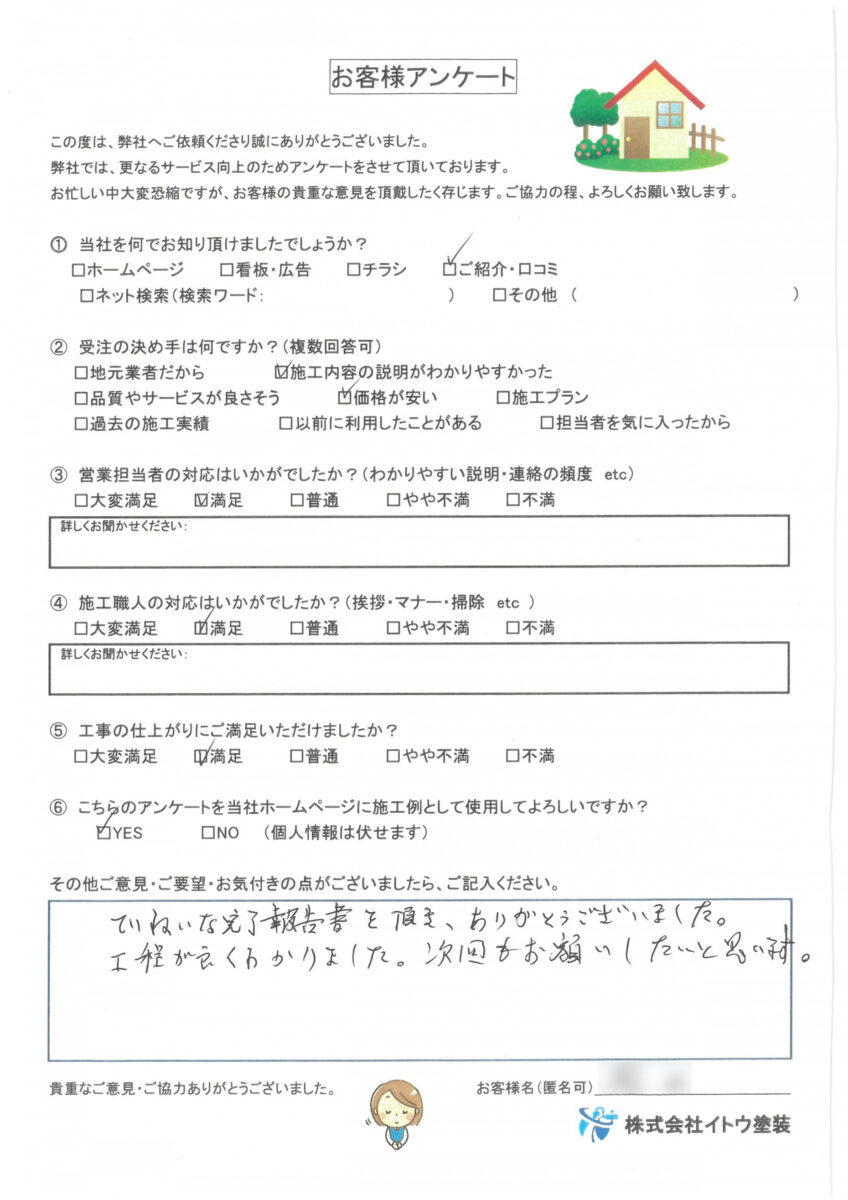 お客様アンケート
この度は、弊社へご依頼くださり誠にありがとうございました。
弊社では、更なるサービス向上のためアンケートをさせて頂いております。
お忙しい中大変恐縮ですが、お客様の貴重な意見を頂戴したく存じます。ご協力の程、よろしくお願い致します。
① 当社を何でお知り頂けましたでしょうか？
□ホームページ □看板・広告 □チラシ ☑ご紹介・口コミ
□ネット検索（検索ワード： ） □その他 （ ）
② 受注の決め手は何ですか？（複数回答可）
□地元業者だから ☑施工内容の説明がわかりやすかった
□品質やサービスが良さそう ☑価格が安い □施工プラン
□過去の施工実績 □以前に利用したことがある □担当者を気に入ったから
③ 営業担当者の対応はいかがでしたか？（わかりやすい説明・連絡の頻度 etc）
□大変満足 ☑満足 □普通 □やや不満 □不満
詳しくお聞かせください：
④ 施工職人の対応はいかがでしたか？（挨拶・マナー・掃除 etc ）
□大変満足 ☑満足 □普通 □やや不満 □不満
詳しくお聞かせください：
⑤ 工事の仕上がりにご満足いただけましたか？
□大変満足 ☑満足 □普通 □やや不満 □不満
⑥ こちらのアンケートを当社ホームページに施工例として使用してよろしいですか？
☑YES □NO （個人情報は伏せます）
その他ご意見・ご要望・お気付きの点がございましたら、ご記入ください。
ていねいな完了報告書を頂き、ありがとうございました。
工程が良くわかりました。次回もお願いしたいと思います。
貴重なご意見・ご協力ありがとうございました。 お客様名（匿名可）
株式会社イトウ塗装